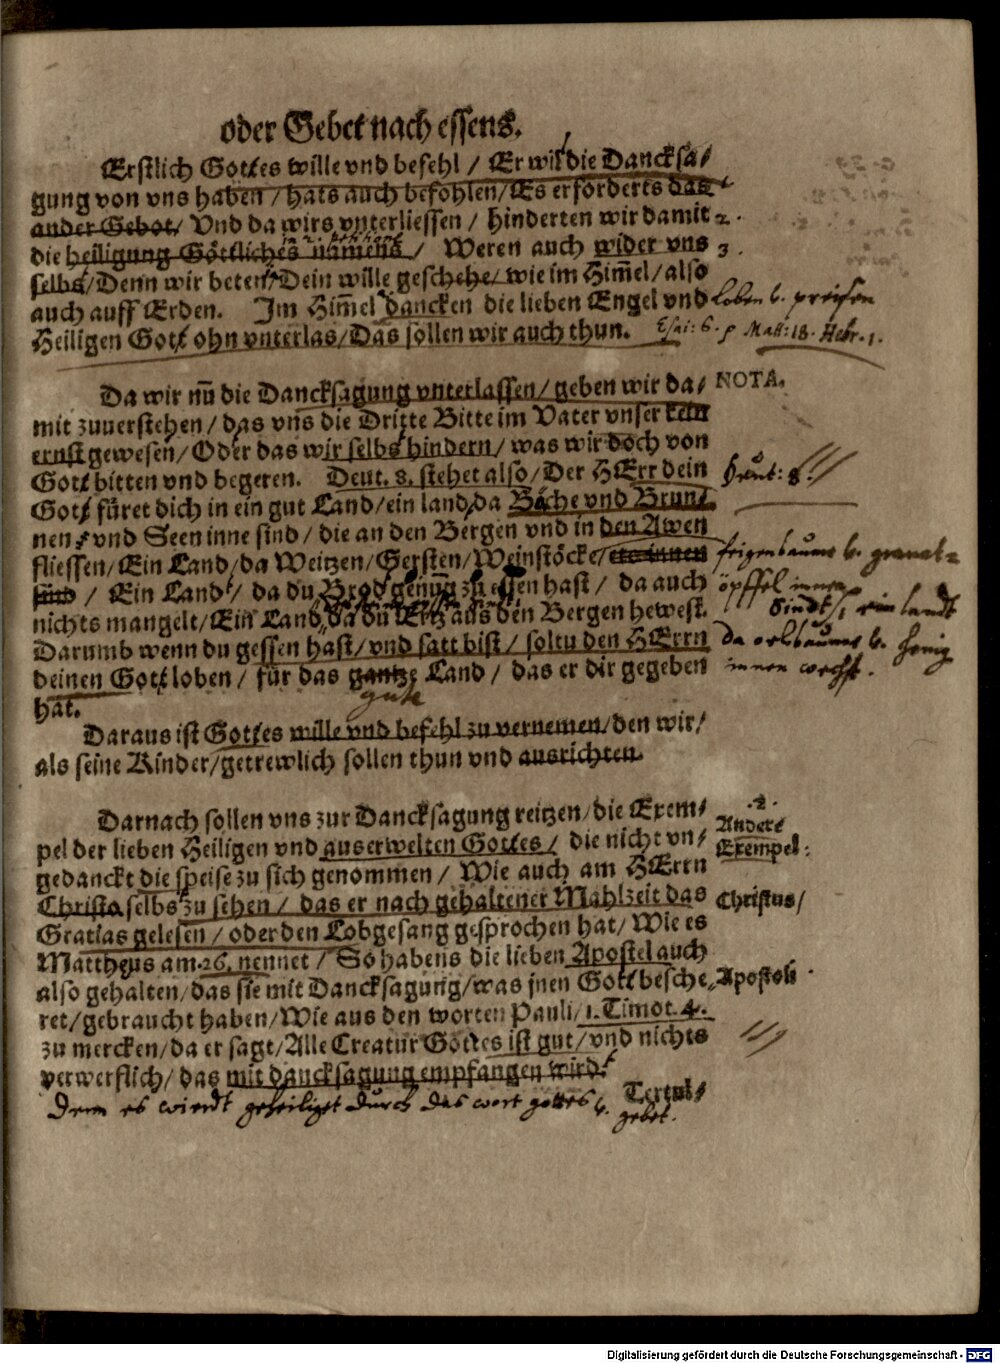 oder Gebet nach essens.
Erstlich Gottes wille vnd befehl / Er wil die Dancksa⸗
gung von vns haben / hats auch befohlen / Es erforderts das
ander Gebot / Vnd da wirs vnterliessen / hinderten wir damit 2.
die heiligung Göttliches namens / Weren auch wider vns 3.
selbs / Denn wir beten / Dein wille geschehe / wie im Him̃el / also
auch auff Erden. Im Him̃el dancken die lieben Engel vnd loben v. preisen
Heiligen Gott ohn vnterlas / Das sollen wir auch thun. Esai: 6. Matt: 18. Hebr. 1.
Da wir nū die Dancksagung vnterlassen / geben wir da⸗ NOTA.
mit zuuerstehen / das vns die Dritte Bitte im Vater vnser kein
ernst gewesen / Oder das wir selbs hindern / was wir doch von
Gott bitten vnd begeren. Deut. 8. stehet also / Der HErr dein Deut: 8.
Gott füret dich in ein gut Land / ein land da Bäche vnd Brun⸗
nen / vnd Seen inne sind / die an den Bergen vnd in den Awen
fliessen / Ein Land / da Weitzen / Gersten / Weinstöcke / etc innen feigenbaume v. granat=
sind / Ein Land / da du Brod genug zu essen hast / da auch öpffel innen
nichts mangelt / Ein Land da du Ertz aus den Bergen hewest. sindt, ein landt
Darumb wenn du gessen hast / vnd satt bist / soltu den HErrn da oelbaume v. honig
deinen Gott loben / für das gantze Land / das er dir gegeben innen wechst.
gute
hat.
Daraus ist Gottes wille vnd befehl zu vernemen / den wir /
als seine Kinder / getrewlich sollen thun vnd ausrichten.
Darnach sollen vns zur Dancksagung reitzen / die Exem⸗ .2.
Ander
pel der lieben Heiligen vnd auserwelten Gottes / die nicht vn⸗ Exempel:
gedanckt die speise zu sich genommen / Wie auch am HErrn
Christo selbs zu sehen / das er nach gehaltener Mahlzeit das Christus /
Gratias gelesen / oder den Lobgesang gesprochen hat / Wie es
Mattheus am 26. nennet / So habens die lieben Apostel auch
also gehalten / das sie mit Dancksagung / was jnen Gott besche⸗ Aposteli
ret / gebraucht haben / Wie aus den worten Pauli / 1. Timot. 4.
zu mercken / da er sagt / Alle Creatur Gottes ist gut / vnd nichts
verwerflich / das mit dancksagung empfangen wird.
Tertul⸗
Denn es wirdt geheiliget durch das wort gottes v. gebet.
Digitalisierung gefördert durch die Deutsche Forschungsgemeinschaft - DFG